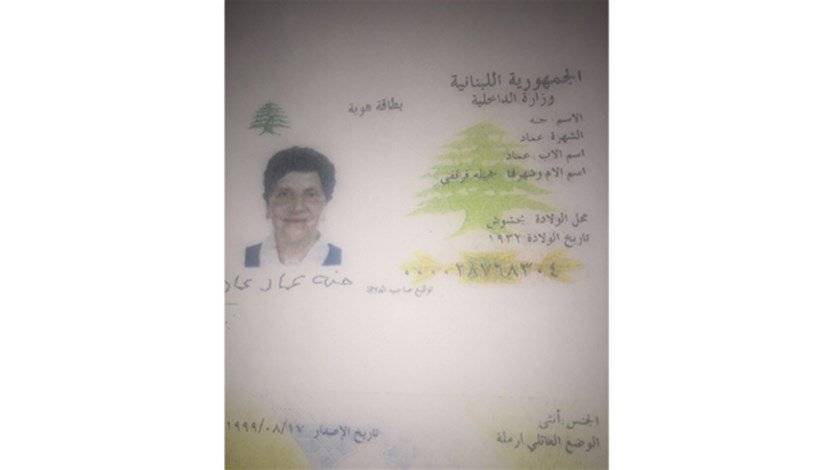 الجمهورية اللبنانية
وزارة الداخلية
بطاقة هوية
الاسم حنه
الشهرة عماد
اسم الاب عماد
اسم الام وشهرتها جميله قرقفي
محل الولادة بخشوش
تاريخ الولادة ١٩٣٢
٠٠٠٠٢٨٧٦٨٣٠٤
توقيع صاحب
حنه عماد عماد
الجنس أنثى
الوضع العائلي ارملة
تاريخ الإصدار ١٩٩٩/٠٨/١٧